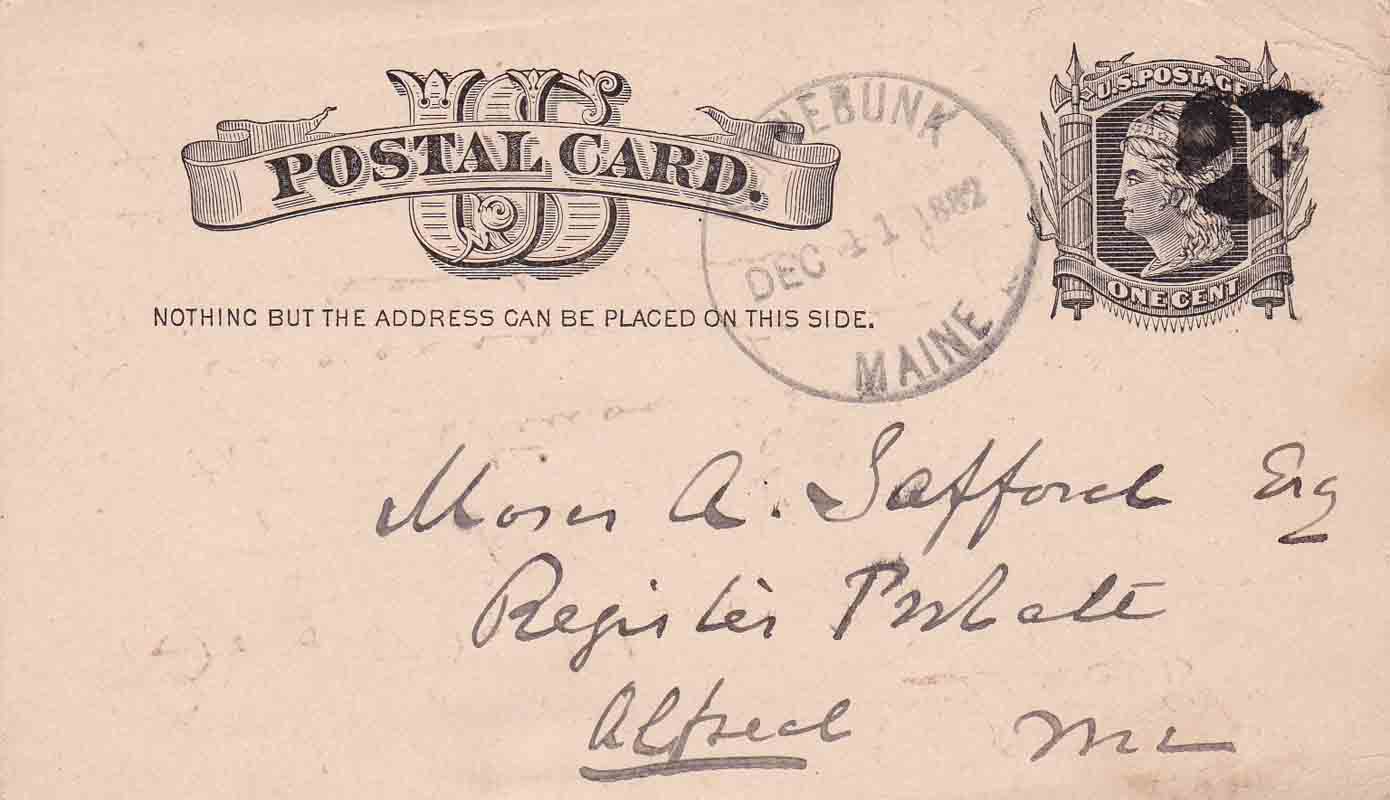 US
POSTAL CARD.
NOTHING BUT THE ADDRESS CAN BE PLACED ON THIS SIDE.
NEBUNK
DEC 11 1882
MAINE
U.S. POSTAGE
ONE CENT
Moses A. Safford Esq
Register Probate
Alfred Me